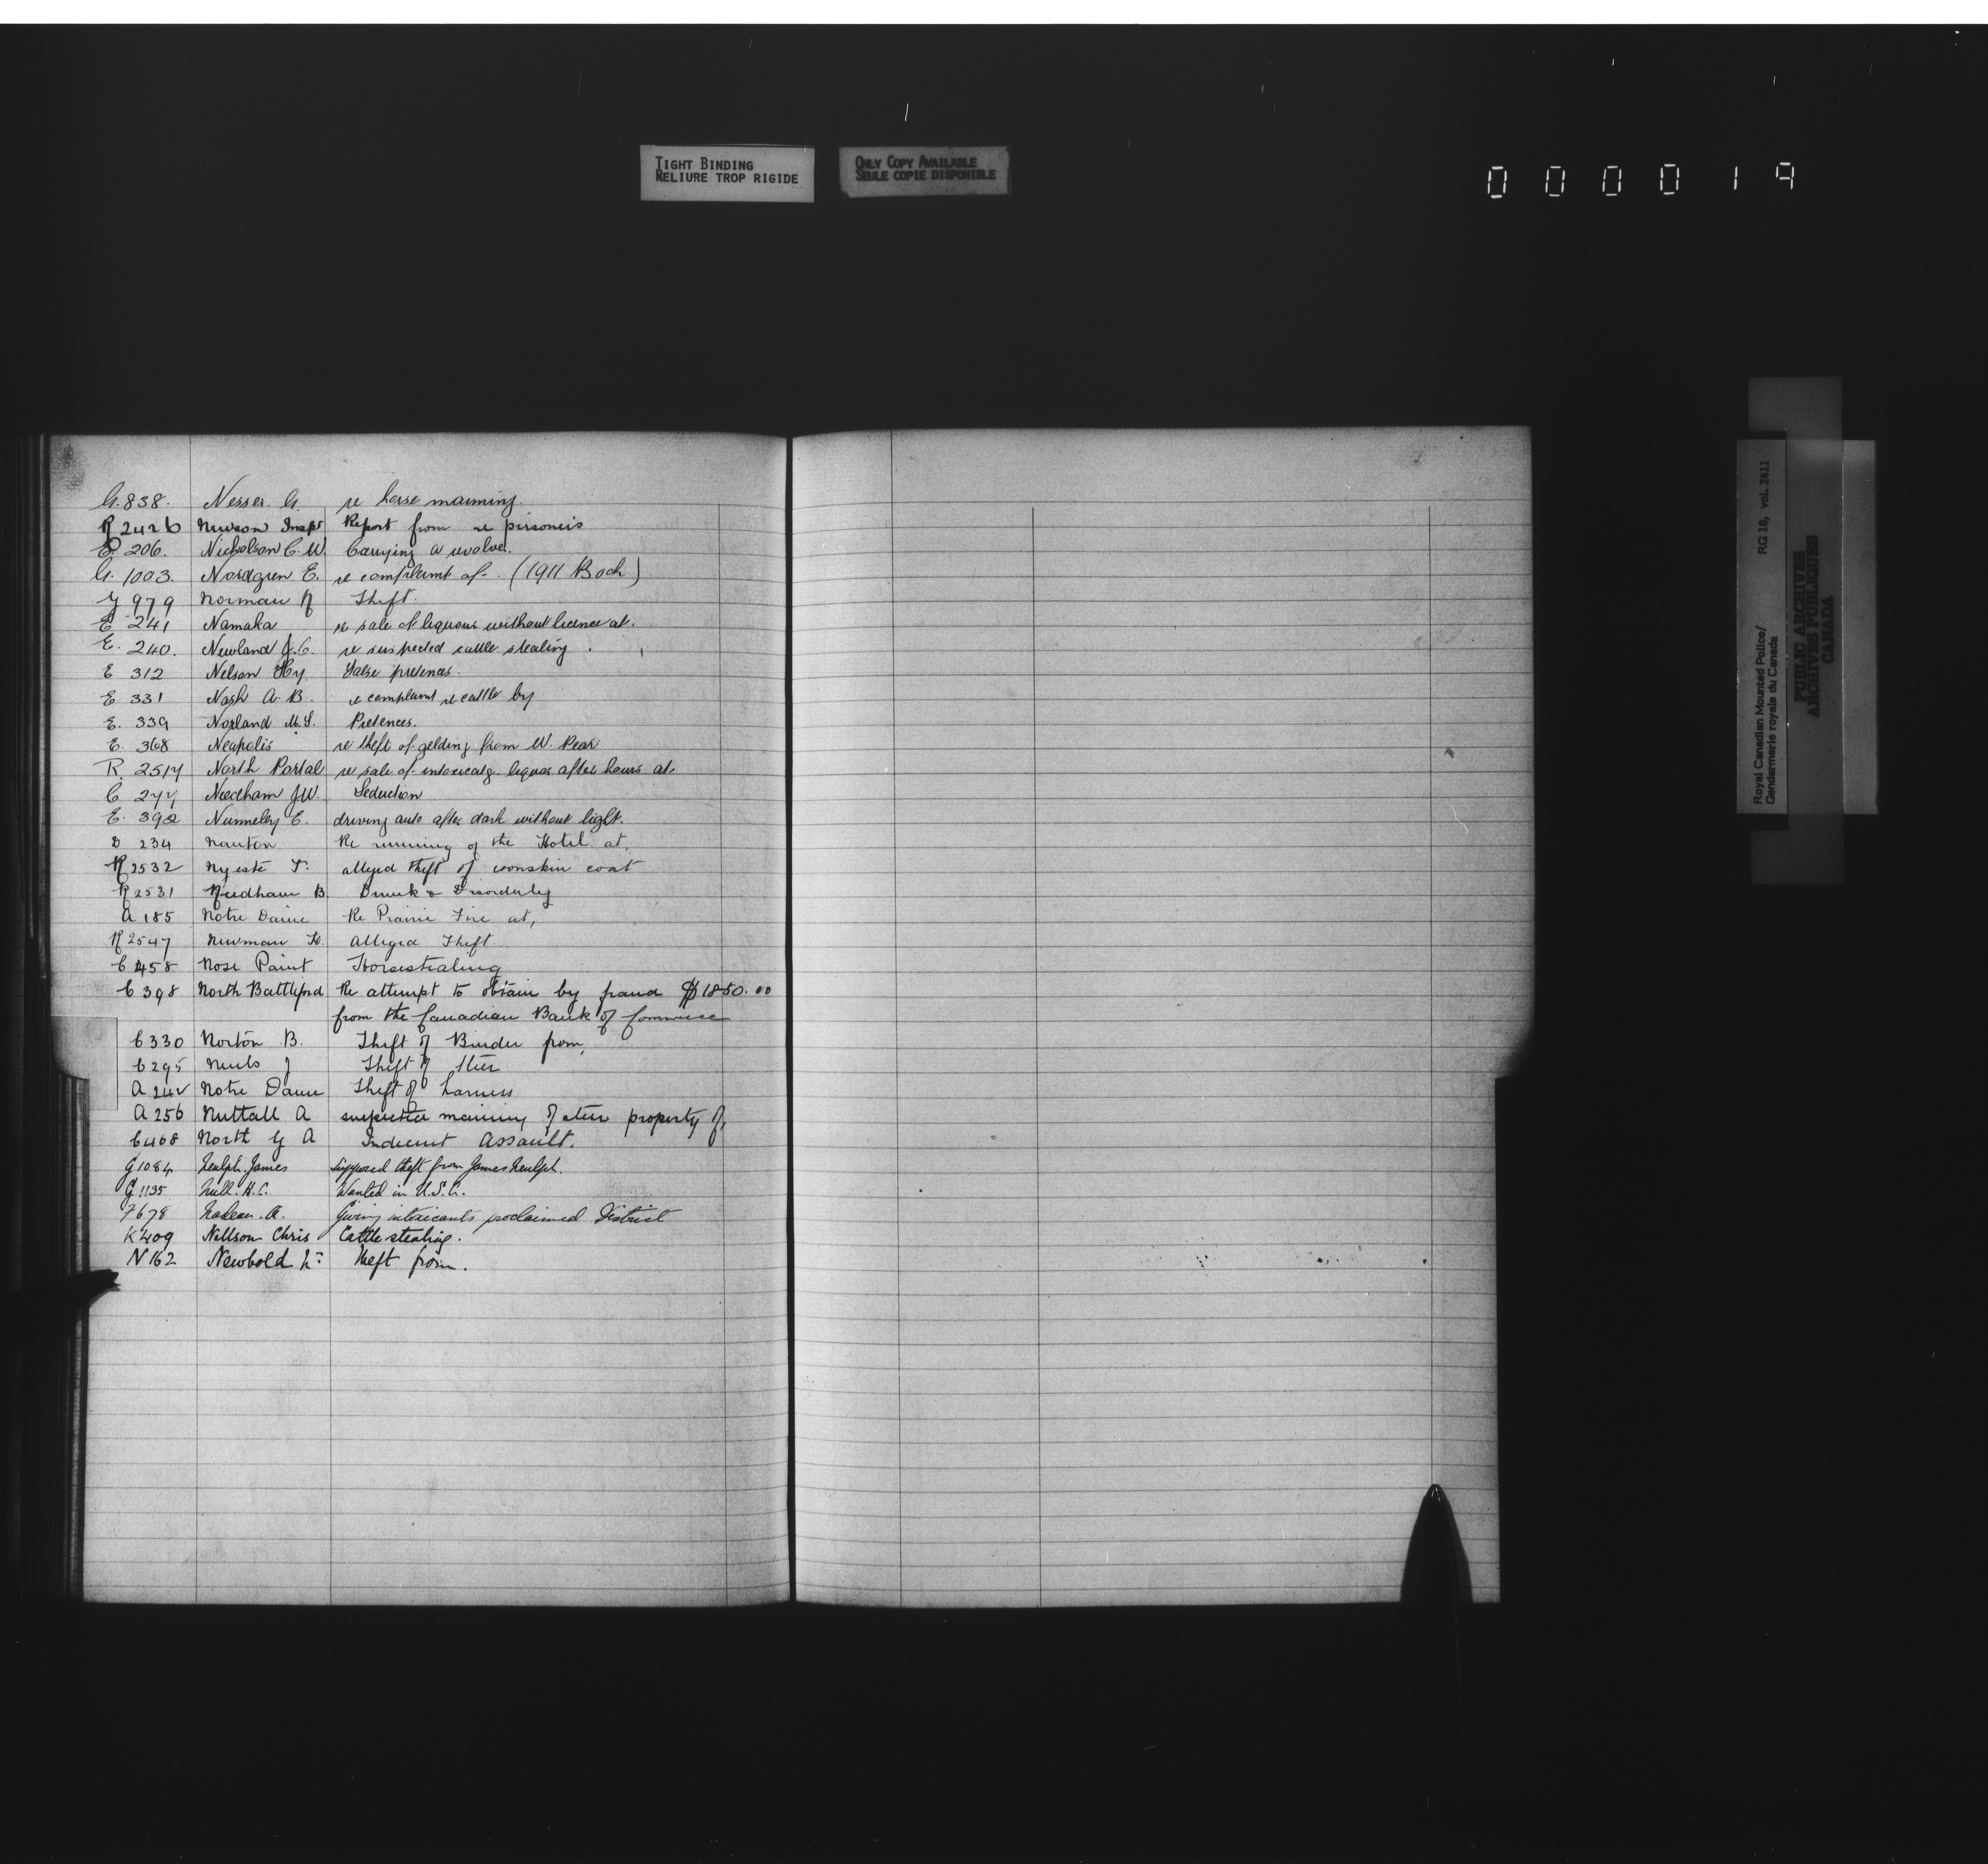 TIGHT BINDING
RELIURE TROP RIGIDE
ONLY COPY AVAILABLE
SEULE COPIE DISPONIBLE
000019
G. 838. Nesser G. re horse maiming.
R 2426 Newson Inspr Report from re prisoners
E. 206. Nicholson C. W. Carrying a revolver.
G. 1003. Nordgren E. re complaint of. (1911 Book)
G 979 Norman Theft.
E 241 Namaka re sale of liquors without licence at.
E. 240. Newland J. C. re suspected cattle stealing.
E 312 Nelson Hy. False pretences.
E 331 Nash A. B. re complaint re cattle by
E. 339 Norland M. S. Pretences.
E. 368 Neapolis re theft of gelding from W. Pear
R. 2517 North Portal re sale of intoxicatg. liquor after hours at.
C 277 Needham J W. Seduction
E. 392 Nunneley E. driving auto after dark without light.
D 234 Nanton Re running of the Hotel at,
R 2532 Nyeste T. alleged theft of coonskin coat
R 2531 Needham B. Drunk & Disorderly
A 185 Notre Dame Re Prairie Fire at,
R 2547 Newman H. Alleged Theft.
C 458 Nose Paint Horsestealing
C 398 North Battleford Re attempt to obtain by fraud $1850.00
from the Canadian Bank of Commerce
C 330 Norton B. Theft of Binder from,
C 295 J Theft of Steer
A 242 Notre Dame Theft of harness
A 256 Nuttall A suspected maiming of steer property of,
C 468 North G A Indecent Assault.
G 1084 Neulph. James Supposed theft from James Neulph.
G 1135 Null. H. C. Wanted in U.S.A.
F 678 Nadeau. A. Giving intoxicants proclaimed District
K 409 Nellson Chris Cattle stealing.
N 162 Newbold Theft from.
Royal Canadian Mounted Police/
Gendarmerie royale du Canada
RG 18, vol. 2411
PUBLIC ARCHIVES
ARCHIVES PUBLIQUES
CANADA